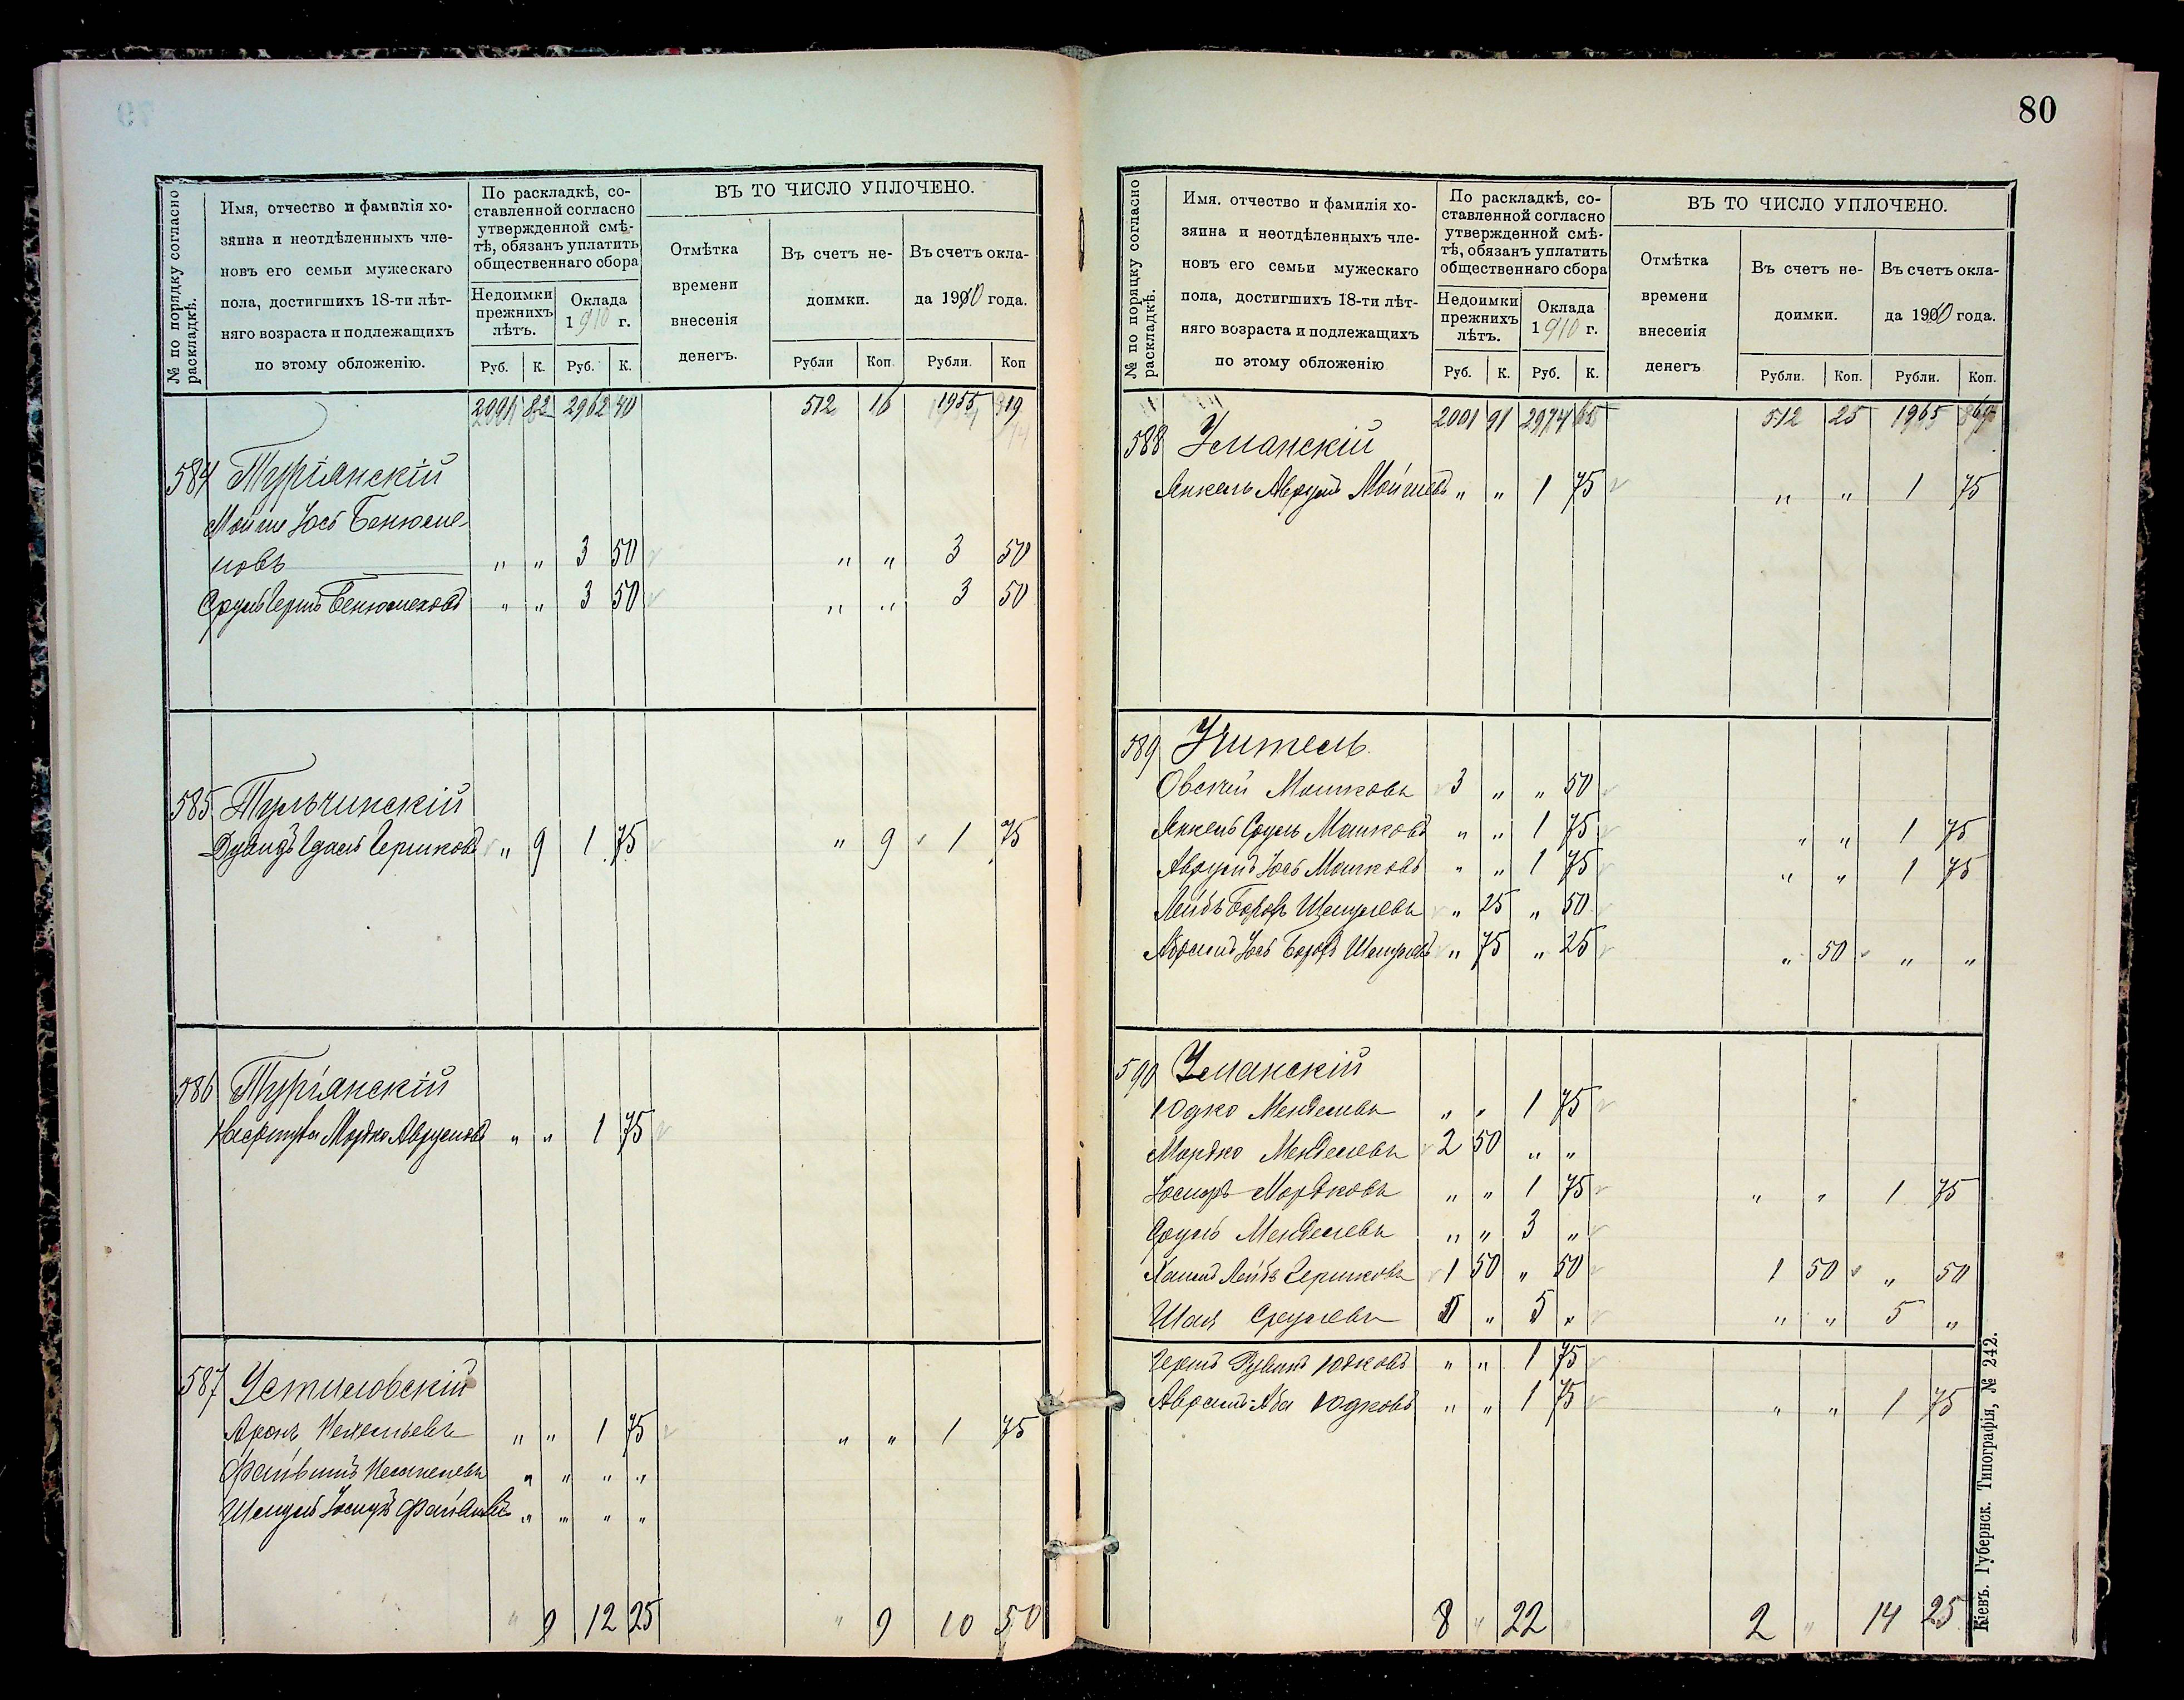 № по порядку согласно раскладкѣ.
Имя, отчество и фамилія хо-
зяина и неотдѣленныхъ чле-
новъ его семьи мужескаго
пола, достигшихъ 18-ти лѣт-
няго возраста и подлежащихъ
по этому обложенію.
По раскладкѣ, со-
ставленной согласно
утвержденной смѣ-
тѣ, обязанъ уплатить
общественнаго сбора
Недоимки прежнихъ лѣтъ.
Оклада 1910 г.
Руб. К. Руб. К.
ВЪ ТО ЧИСЛО УПЛОЧЕНО.
Отмѣтка
времени
внесенія
денегъ.
Въ счетъ не-
доимки.
Въ счетъ окла-
да 1910 года.
Рубли Коп. Рубли. Коп
82 2962 40 512 16 1955 19
584 Турiянскій
Мойше Іось Бенюме-
новъ " " 3 50 " " 3 50
Сруль Герш Бенюменовъ " " 3 50 " " 3 50
585 Тульчинскій
Дувидъ Удаль Гершковъ " 9 1 75 " 9 1 75
586 Турiянскій
Мордко Аврумовъ " " 1 75
587 Устиловскій
Аронъ " " 1 75 " " 1 75
Файвишъ " " " "
Шмуль Іосифъ " " " "
" 9 12 25 " 9 10 50
80
№ по порядку согласно раскладкѣ.
Имя, отчество и фамилія хо-
зяина и неотдѣленныхъ чле-
новъ его семьи мужескаго
пола, достигшихъ 18-ти лѣт-
няго возраста и подлежащихъ
по этому обложенію
По раскладкѣ, со-
ставленной согласно
утвержденной смѣ-
тѣ, обязанъ уплатить
общественнаго сбора
Недоимки прежнихъ лѣтъ.
Оклада 1910 г.
Руб. К. Руб. К.
ВЪ ТО ЧИСЛО УПЛОЧЕНО.
Отмѣтка
времени
внесенія
денегъ
Въ счетъ не-
доимки.
Въ счетъ окла-
да 1910 года.
Рубли. Коп. Рубли. Коп.
2001 91 2974 65 512 25 1965 69
588 Уманскій
Янкель Аврумъ Мойшевъ " " 1 75 " " 1 75
589 Учитель
Овсей Мошковъ 3 " " 50
Янкель Сруль Мошковъ " " 1 75 " " 1 75
Аврумъ Іось Мошковъ " " 1 75 " " 1 75
Лейбъ Берковъ Шмулевъ " 25 " 50
Абрамъ Іось Берковъ Шмулевъ " 75 " 25 " 50 " "
590 Уманскій
Юдко Менделевъ " " 1 75
Мордко Менделевъ 2 50 " "
Іосифъ Мордковъ " " 1 75 " " 1 75
Сруль Менделевъ " " 3 "
Хаимъ Лейбъ Гершковъ 1 50 " 50 1 50 " 50
Шая Срулевъ " 5 " " " 5 "
Гершъ Рувинъ Юдковъ " " 1 75
Аврамъ-Аба Юдковъ " " 1 75 " " 1 75
8 " 22 2 " 14 25
Кіевъ. Губернск. Типографія, № 242.